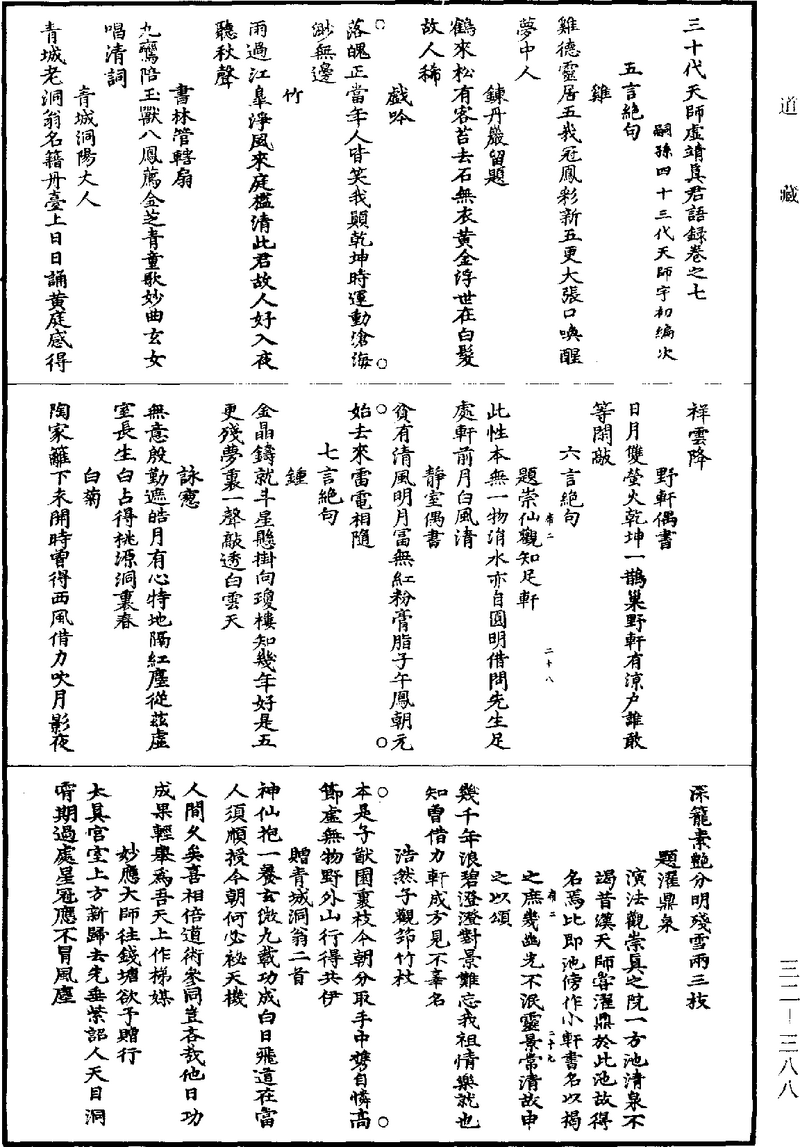 道藏
三十代天師虛靖真君語錄卷之七
嗣孫四十三代天師宇初編次
五言絕句
雞
雞德靈居五峩冠鳳彩新五更大張口喚醒
夢中人
鍊丹巖留題
鶴來松有客苔去石無衣黃金浮世在白髮
故人稀
戲吟
落魄正當年人皆笑我顛乾坤時運動滄海
渺無邊
竹
雨過江臯淨風來庭檻清此君故人好入夜
聽秋聲
書林管轄扇
九鸞陪玉獸八鳳薦金芝青童歌妙曲玄女
唱清詞
青城洞陽大人
青城老洞翁名籍丹臺上日日誦黃庭感得
祥雲降
野軒偶書
日月雙螢火乾坤一鵲巢野軒有涼戶誰敢
等閑敲
六言絕句
題崇仙觀知足軒
此性本無一物消水亦自圓明借問先生足
處軒前月白風清
靜室偶書
貧有清風明月富無紅粉膏脂子午鳳朝元
始去來雷電相隨
七言絕句
鍾
金晶鑄就斗星懸掛向瓊樓知幾年好是五
更殘夢裏一聲敲透白雲天
詠窻
無意殷勤遮皓月有心特地隔紅塵從茲虛
室長生白占得桃源洞裏春
白菊
陶家籬下未開時曾得西風借力吹月影夜
深籠素艷分明殘雪兩三枝
題濯鼎泉
演法觀崇真之院一方池清泉不
竭昔漢天師嘗濯鼎於此池故得
名焉比即池傍作小軒書名以揭
之庶幾幽光不泯靈景常清故申
之以頌
幾千年浪碧澄澄對景難忘我祖情樂就也
知曾借力軒成方見不辜名
浩然子觀筇竹杖
本是方猷園裏枝今朝分取手中携自憐高
節虛無物野外山行得共伊
贈青城洞翁二首
神仙抱一養玄微九載功成白日飛道在當
人須順授今朝何必祕天機
人間久矣喜相倍道術參同豈吝哉他日功
成果輕舉為吾天上作梯媒
妙應大師往錢塘欲予贈行
太真宮室上方新歸去先垂紫詔人天目洞
霄期過處星冠應不冒風塵
三二—三八八